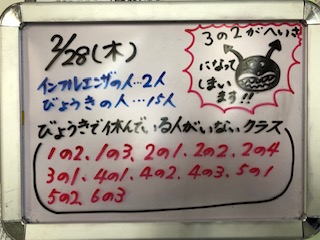 2/28(木)
インフルエンザの人…2人
びょうきの人…15人
3の2がへいき
になって
しまい
ます!!
びょうきで休んでいる人がいないクラス
1の2、1の3、2の1、2の2、2の4
3の1、4の1、4の2、4の3、5の1
5の2、6の3